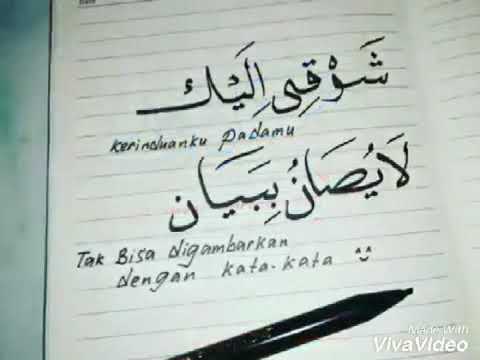 شَوْقِى اِلَيْك
kerinduanku padamu
لَا يُصَانُ بِبَيَان
Tak Bisa digambarkan
dengan kata-kata
Made With
VivaVideo